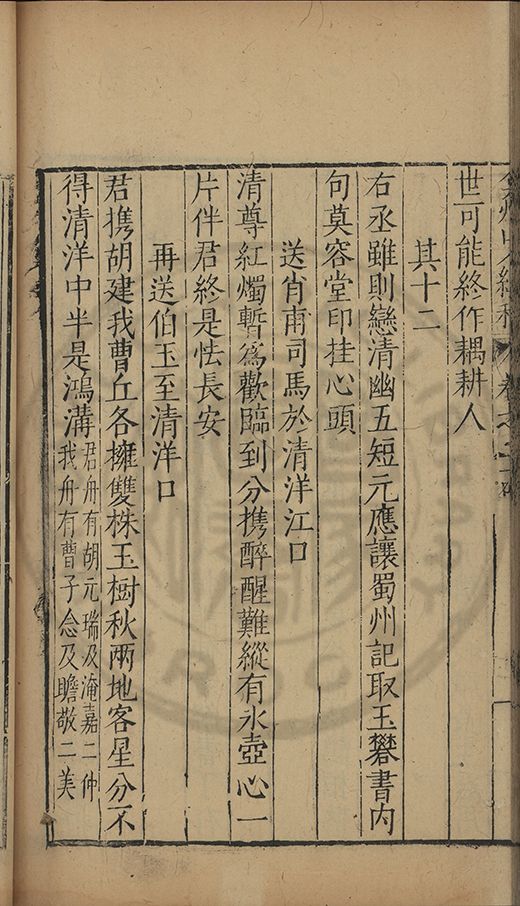 世可能終作耦耕人
其十二
右丞雖則戀清幽五短元應讓蜀州記取玉礬書内
句莫容堂印挂心頭
送肖甫司馬於清洋江口
清尊紅燭暫爲歡臨到分携醉醒難縱有氷壺心一
片伴君終是怯長安
再送伯玉至清洋口
君携胡建我曹丘各擁雙株玉樹秋兩地客星分不
得清洋中半是鴻溝君舟有胡元瑞及淹嘉二仲
我舟有曹子念及瞻敬二美